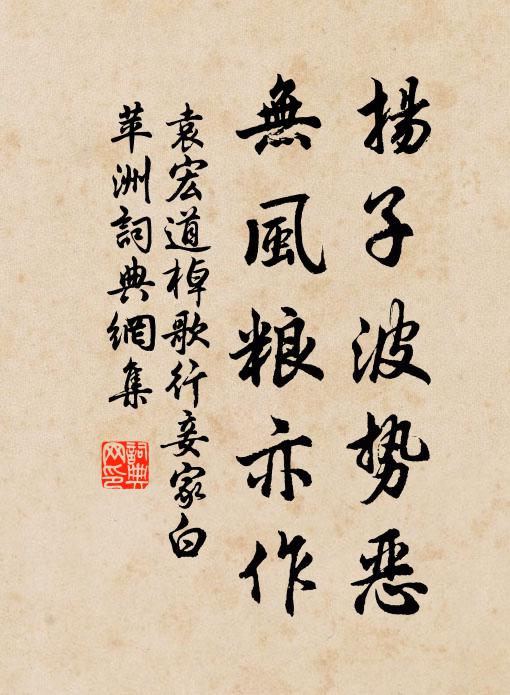 揚子波势恶
無風粮亦作
袁宏道棹歌行妾家白
苹洲詞典網集
詞典網印